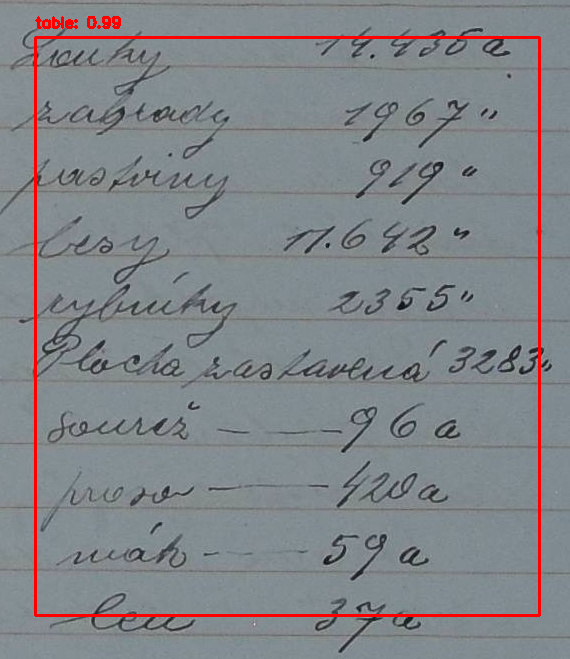 table: 0.99
Louky 14.436 a
zahrady 1967 "
pastviny 919 "
lesy 11.642 "
rybníky 2355 "
Plocha zastavená 3283 "
souřž — — 96 a
proso — — 420 a
mák — — 59 a
len 37 a